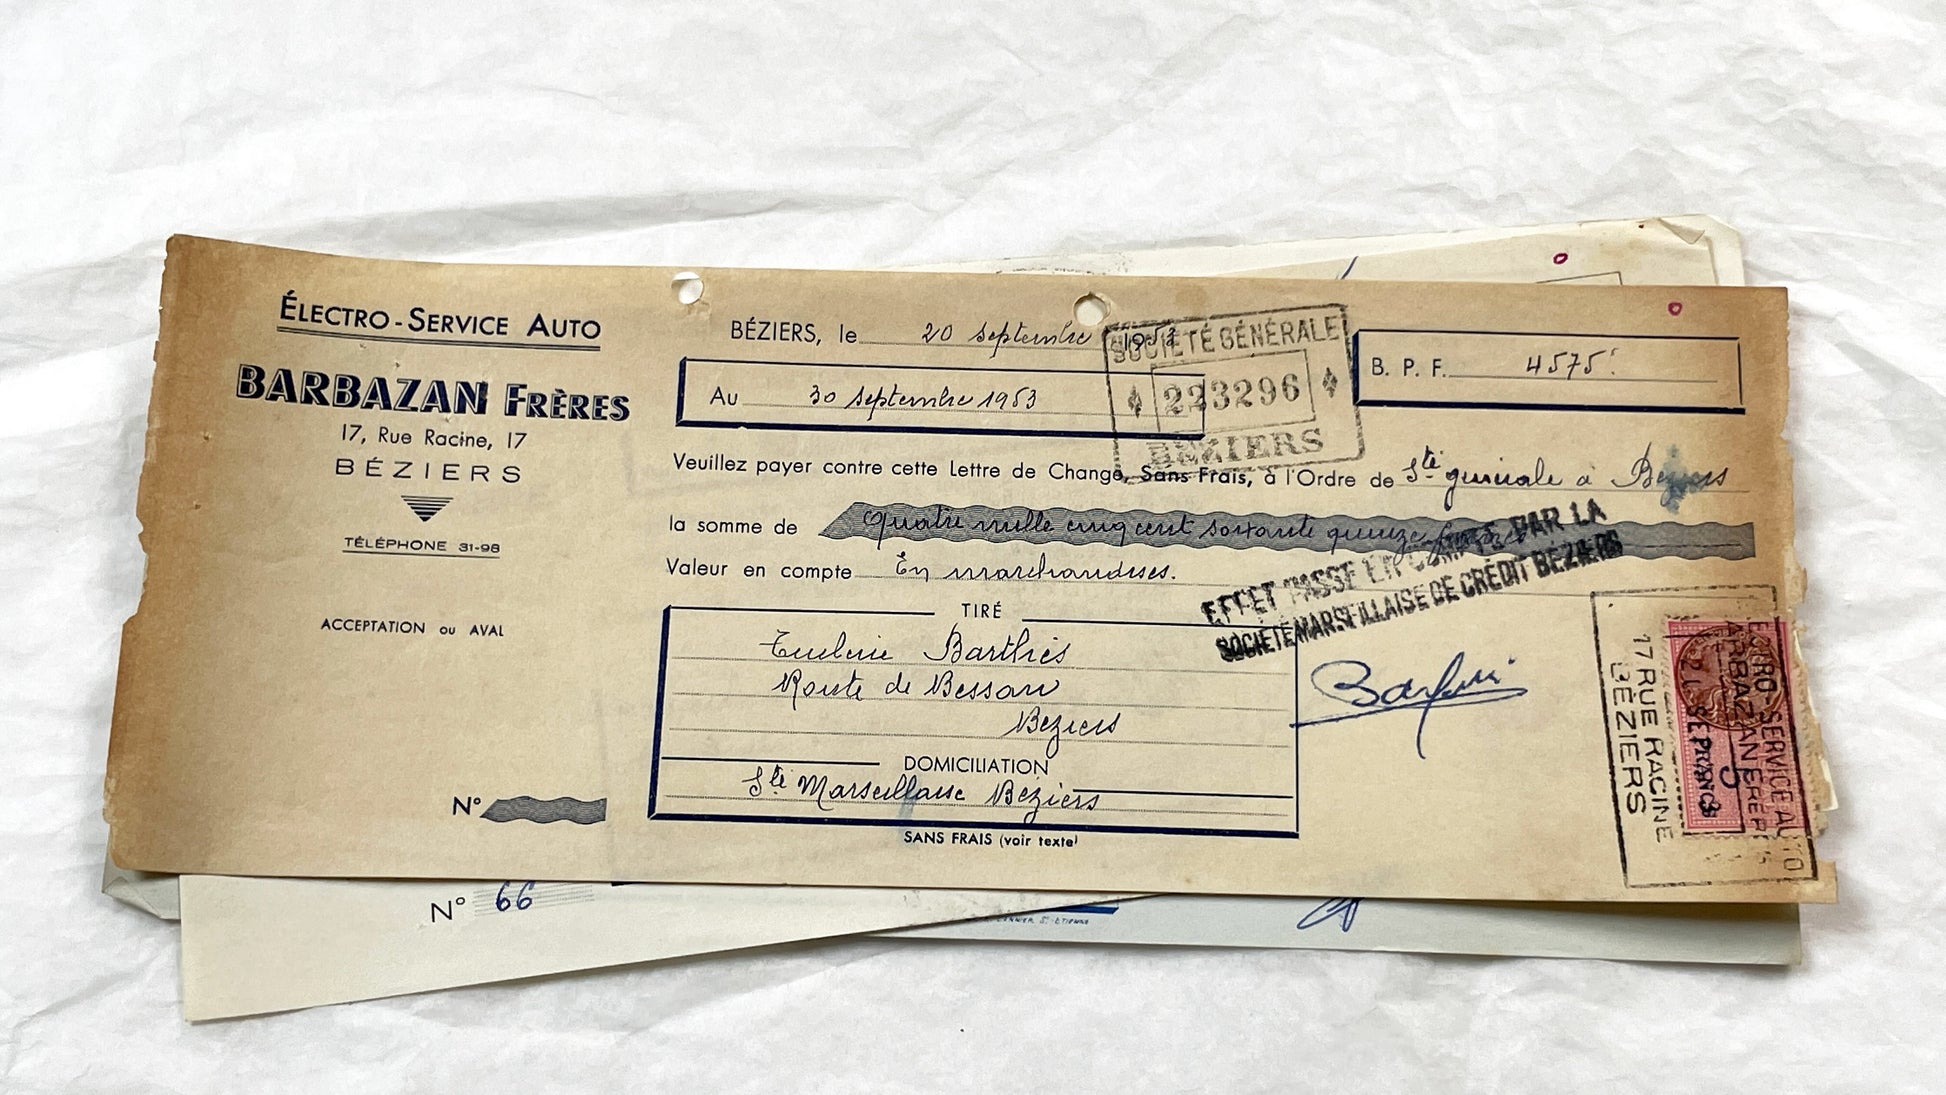 ÉLECTRO-SERVICE AUTO
BARBAZAN FRÈRES
17, Rue Racine, 17
BÉZIERS
TÉLÉPHONE 31-98
ACCEPTATION ou AVAL
N°
BÉZIERS, le 20 septembre 1953
Au 30 septembre 1953
SOCIÉTÉ GÉNÉRALE
223296
BÉZIERS
B. P. F. 4575
Veuillez payer contre cette Lettre de Change, Sans Frais, à l'Ordre de Sté générale à Béziers
la somme de Quatre mille cinq cent soixante quinze francs
Valeur en compte En marchandises.
EFFET PASSÉ EN COMPTE PAR LA
SOCIÉTÉ MARSEILLAISE DE CRÉDIT BÉZIERS
TIRÉ
Barthès
Route de Bessan
Béziers
DOMICILIATION
Sté Marseillaise Béziers
SANS FRAIS (voir texte)
ELECTRO SERVICE AUTO
BARBAZAN FRÈRES
17 RUE RACINE
BÉZIERS
21 SEPT
5
N° 66